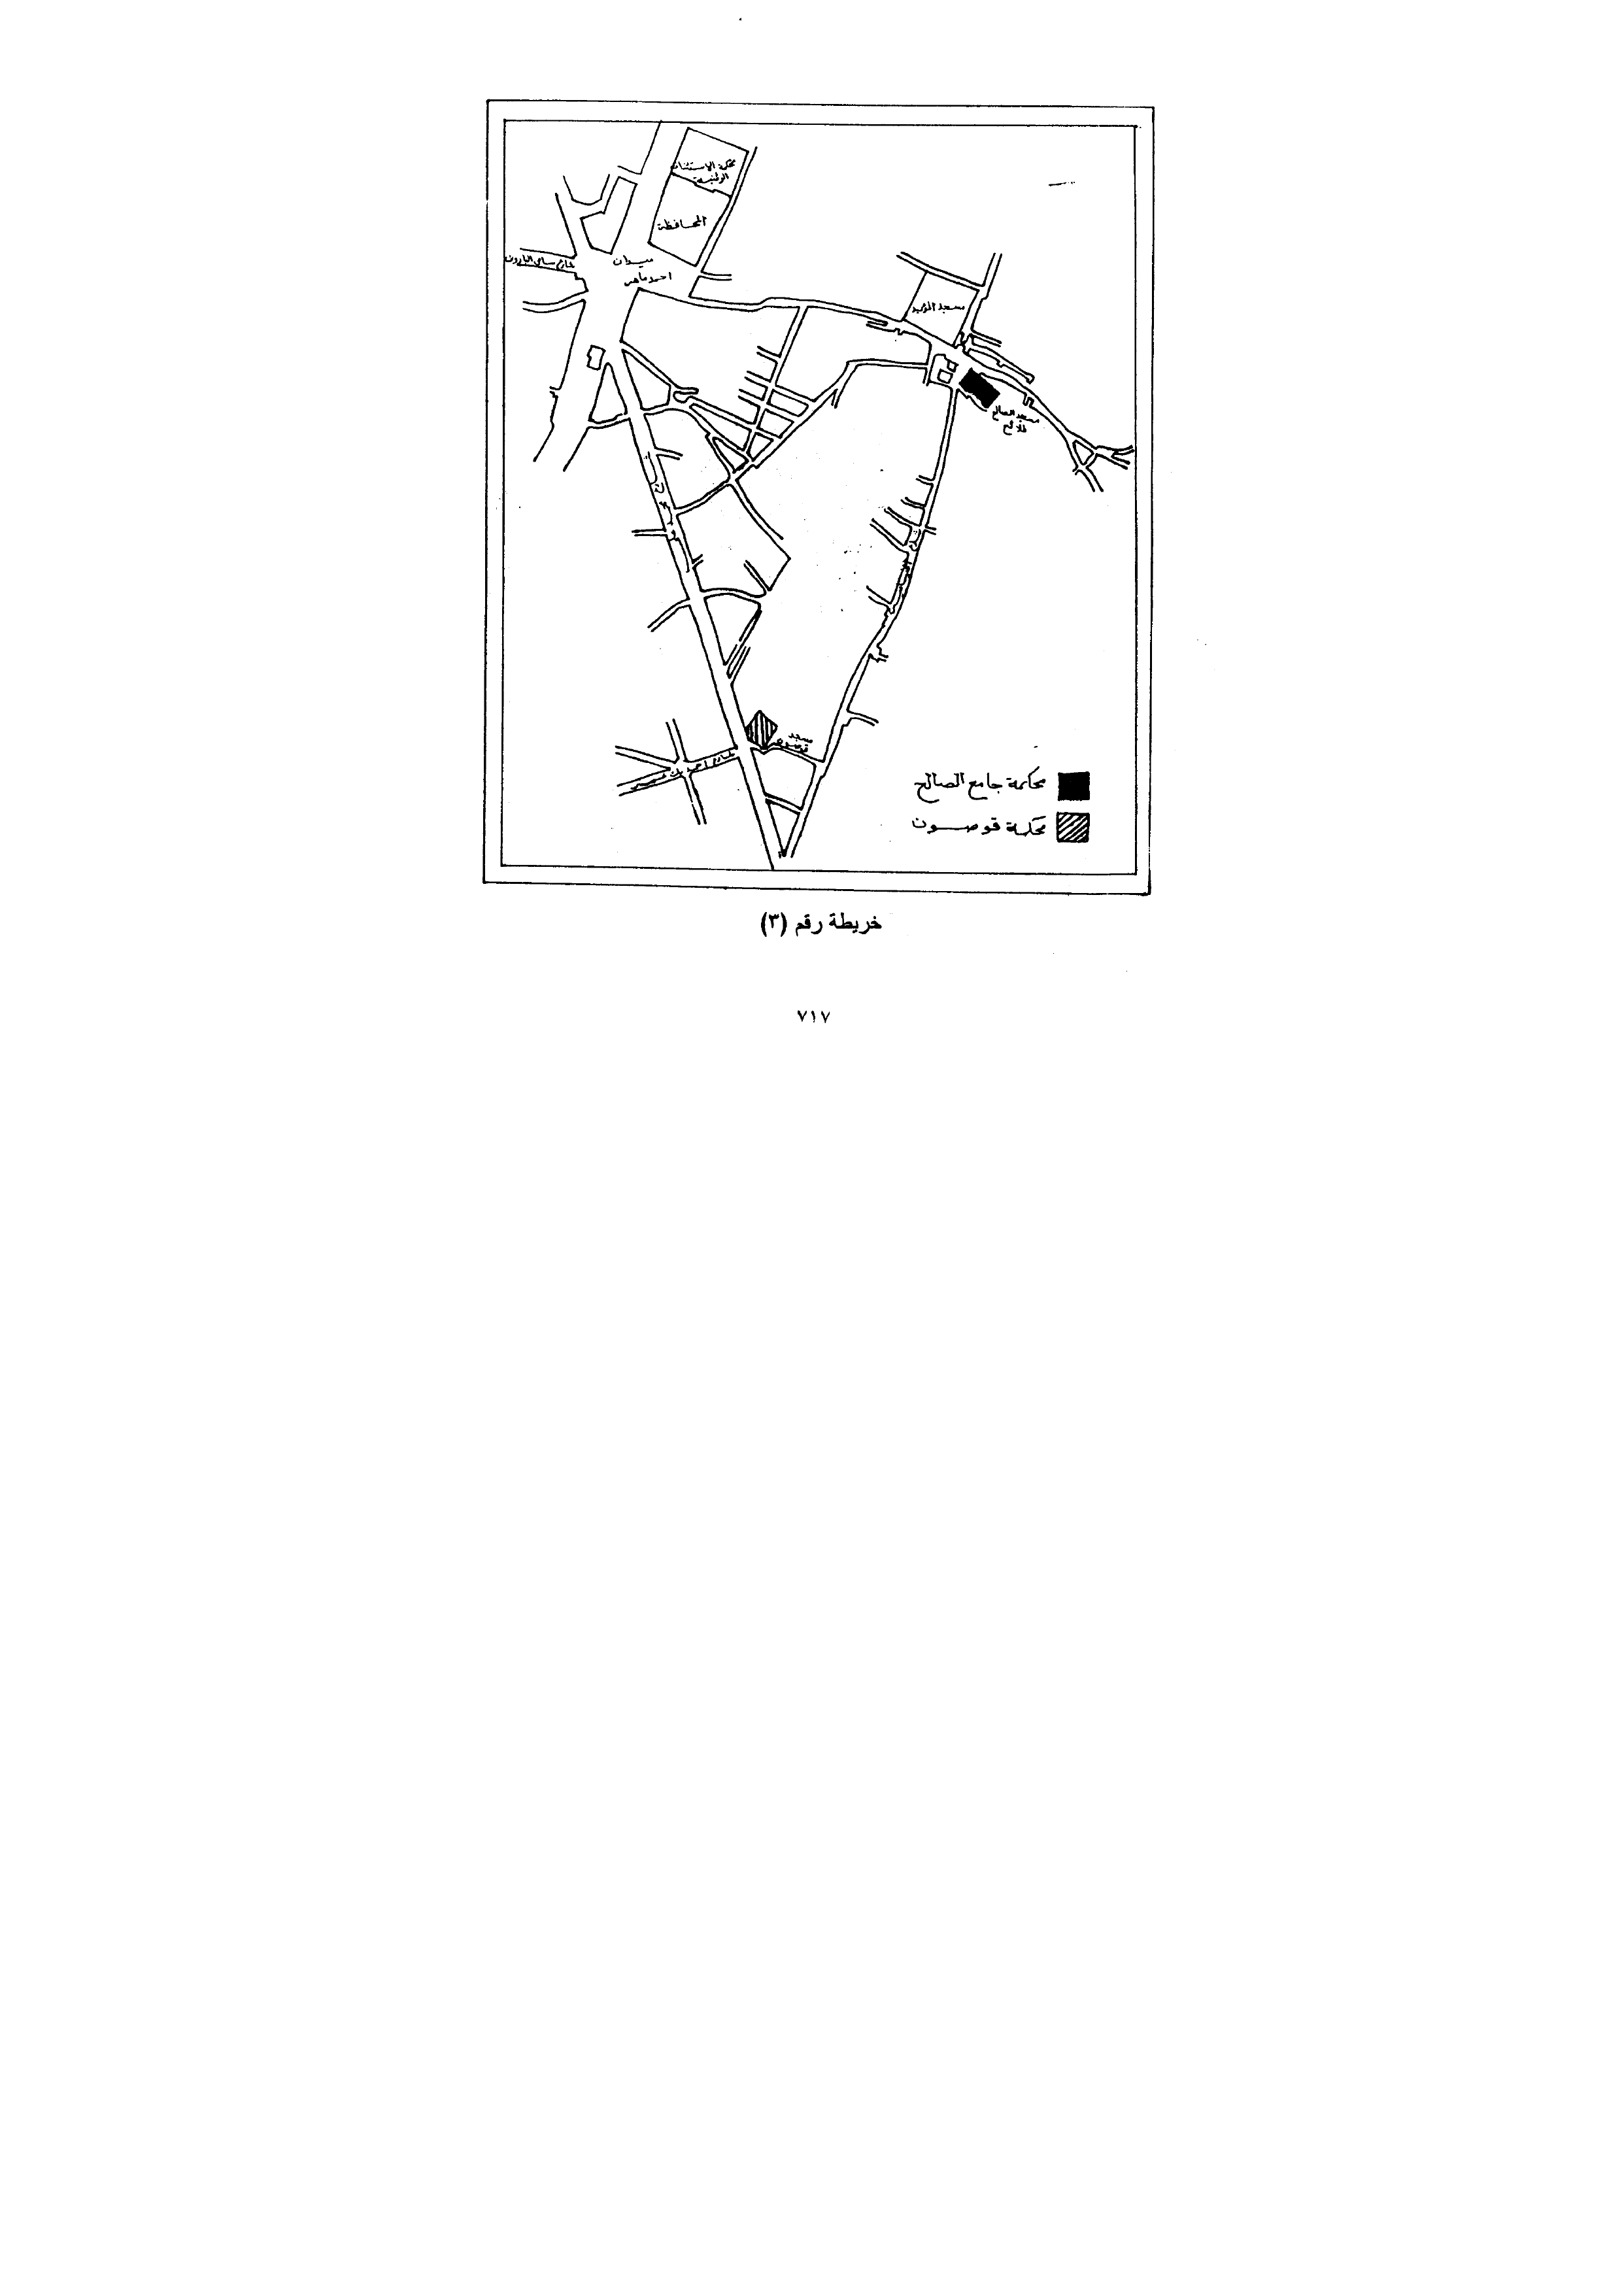 محكمة الاستئناف
الوطنية
المحافظة
ميدان
احمد ماهر
شارع سامى البارودى
مسجد المؤيد
مسجد الصالح
طلائع
مسجد
قوصون
شارع احمد بك
محكمة جامع الصالح
محكمة قوصون
خريطة رقم (٣)
٧١٧